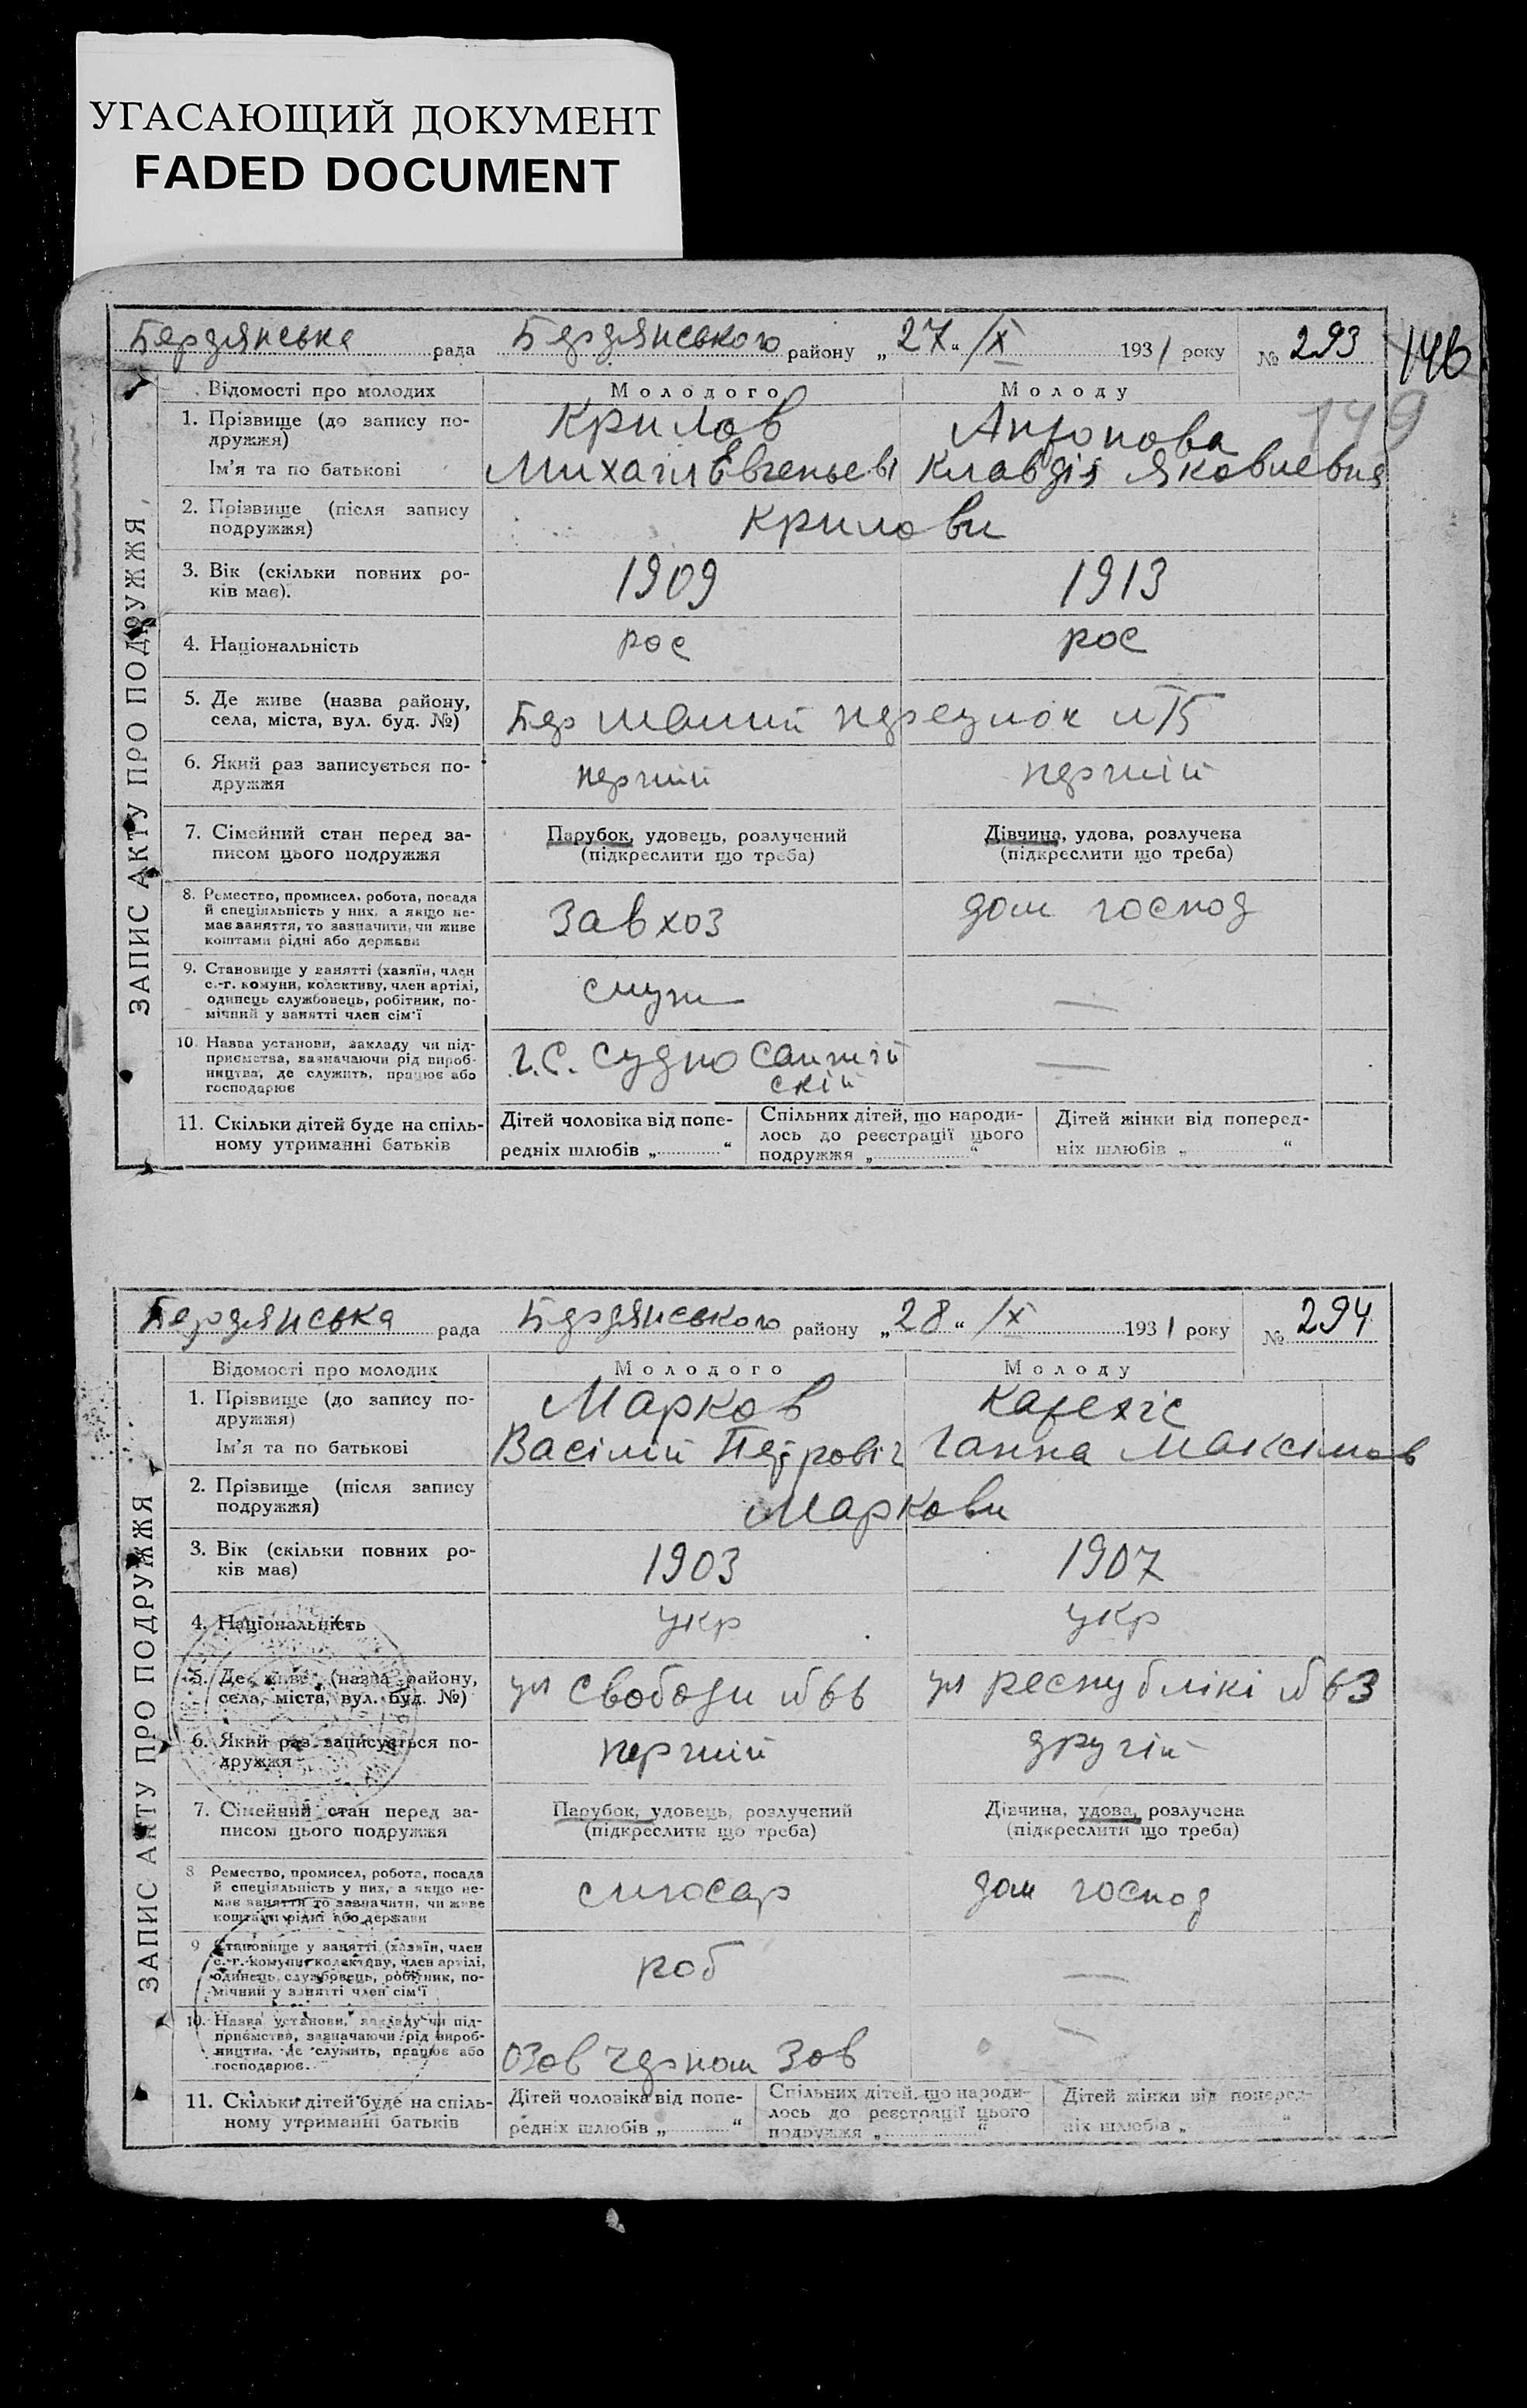 УГАСАЮЩИЙ ДОКУМЕНТ
FADED DOCUMENT
Бердянська рада Бердянського району „27“ /X 1931 року № 293
146
149
ЗАПИС АКТУ ПРО ПОДРУЖЖЯ
Відомості про молодих Молодого Молоду
1. Прізвище (до запису по-
дружжя) Крилов Антонова
Ім'я та по батькові Михаіл Євгеньеві Клавдія Яковлевна
2. Прізвище (після запису
подружжя) Крилови
3. Вік (скільки повних ро-
ків має). 1909 1913
4. Національність рос рос
5. Де живе (назва району,
села, міста, вул. буд. №) Бер малий переулок
6. Який раз записується по-
дружжя перший перший
7. Сімейний стан перед за-
писом цього подружжя
Парубок, удовець, розлучений
(підкреслити що треба)
Дівчина, удова, розлучена
(підкреслити що треба)
8. Ремество, промисел, робота, посада
й спеціяльність у них, а якщо не-
має заняття, то зазначити, чи живе
коштами рідні або держави
Завхоз дом господ
9. Становище у занятті (хазяїн, член
с.-г. комуни, колективу, член артілі,
одинець службовець, робітник, по-
мічний у занятті член сім'ї
служ —
10. Назва установи, закладу чи під-
приємства, зазначаючи рід вироб-
ництва, де служить, працює або
господарює
—
11. Скільки дітей буде на спіль-
ному утриманні батьків
Дітей чоловіка від попе-
редніх шлюбів „ “
Спільних дітей, що народи-
лось до реєстрації цього
подружжя „ “
Дітей жінки від поперед-
ніх шлюбів „ “
Бердянська рада Бердянського району „28“ /X 1931 року № 294
ЗАПИС АКТУ ПРО ПОДРУЖЖЯ
Відомості про молодих Молодого Молоду
1. Прізвище (до запису по-
дружжя) Марков
Ім'я та по батькові Васілій Петровіч Ганна Максимов
2. Прізвище (після запису
подружжя) Маркови
3. Вік (скільки повних ро-
ків має) 1903 1907
4. Національність укр укр
5. Де живе (назва району,
села, міста, вул. буд. №) ул Свободи №66 ул республікі №63
6. Який раз записується по-
дружжя перший другій
7. Сімейний стан перед за-
писом цього подружжя
Парубок, удовець, розлучений
(підкреслити що треба)
Дівчина, удова, розлучена
(підкреслити що треба)
8 Ремество, промисел, робота, посада
й спеціяльність у них, а якщо не-
має заняття то зазначити, чи живе
коштами рідні або держави
слюсар дом господ
9 Становище у занятті (хазяїн, член
с.-г. комуни колективу, член артілі,
одинець, службовець, робітник, по-
мічний у занятті член сім'ї
роб —
10. Назва установи, закладу чи під-
приємства, зазначаючи рід вироб-
ництва, де служить, працює або
господарює.
—
11. Скільки дітей буде на спіль-
ному утриманні батьків
Дітей чоловіка від попе-
редніх шлюбів „ “
Спільних дітей, що народи-
лось до реєстрації цього
подружжя „ “
Дітей жінки від поперед-
ніх шлюбів „ “